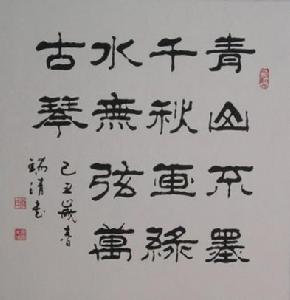 青山不墨
千秋畫綠
水無弦萬
古琴
己丑歲春
瑞清書